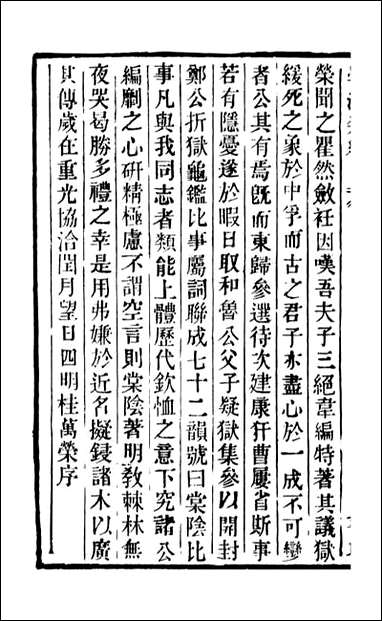 榮聞之瞿然斂衽因嘆吾夫子三絕韋編特著其議獄
緩死之象於中孚而古之君子亦盡心於一成不可變
者公其有焉旣而東歸參選待次建康犴曹屢省斯事
若有隱憂遂於暇日取和魯公父子疑獄集參以開封
鄭公折獄龜鑑比事屬詞聯成七十二韻號曰棠陰比
事凡與我同志者類能上體歷代欽恤之意下究諸公
編劘之心研精極慮不謂空言則棠陰著明敎棘林無
夜哭曷勝多禮之幸是用弗嫌於近名擬鋟諸木以廣
其傳歲在重光協洽閏月望日四明桂萬榮序